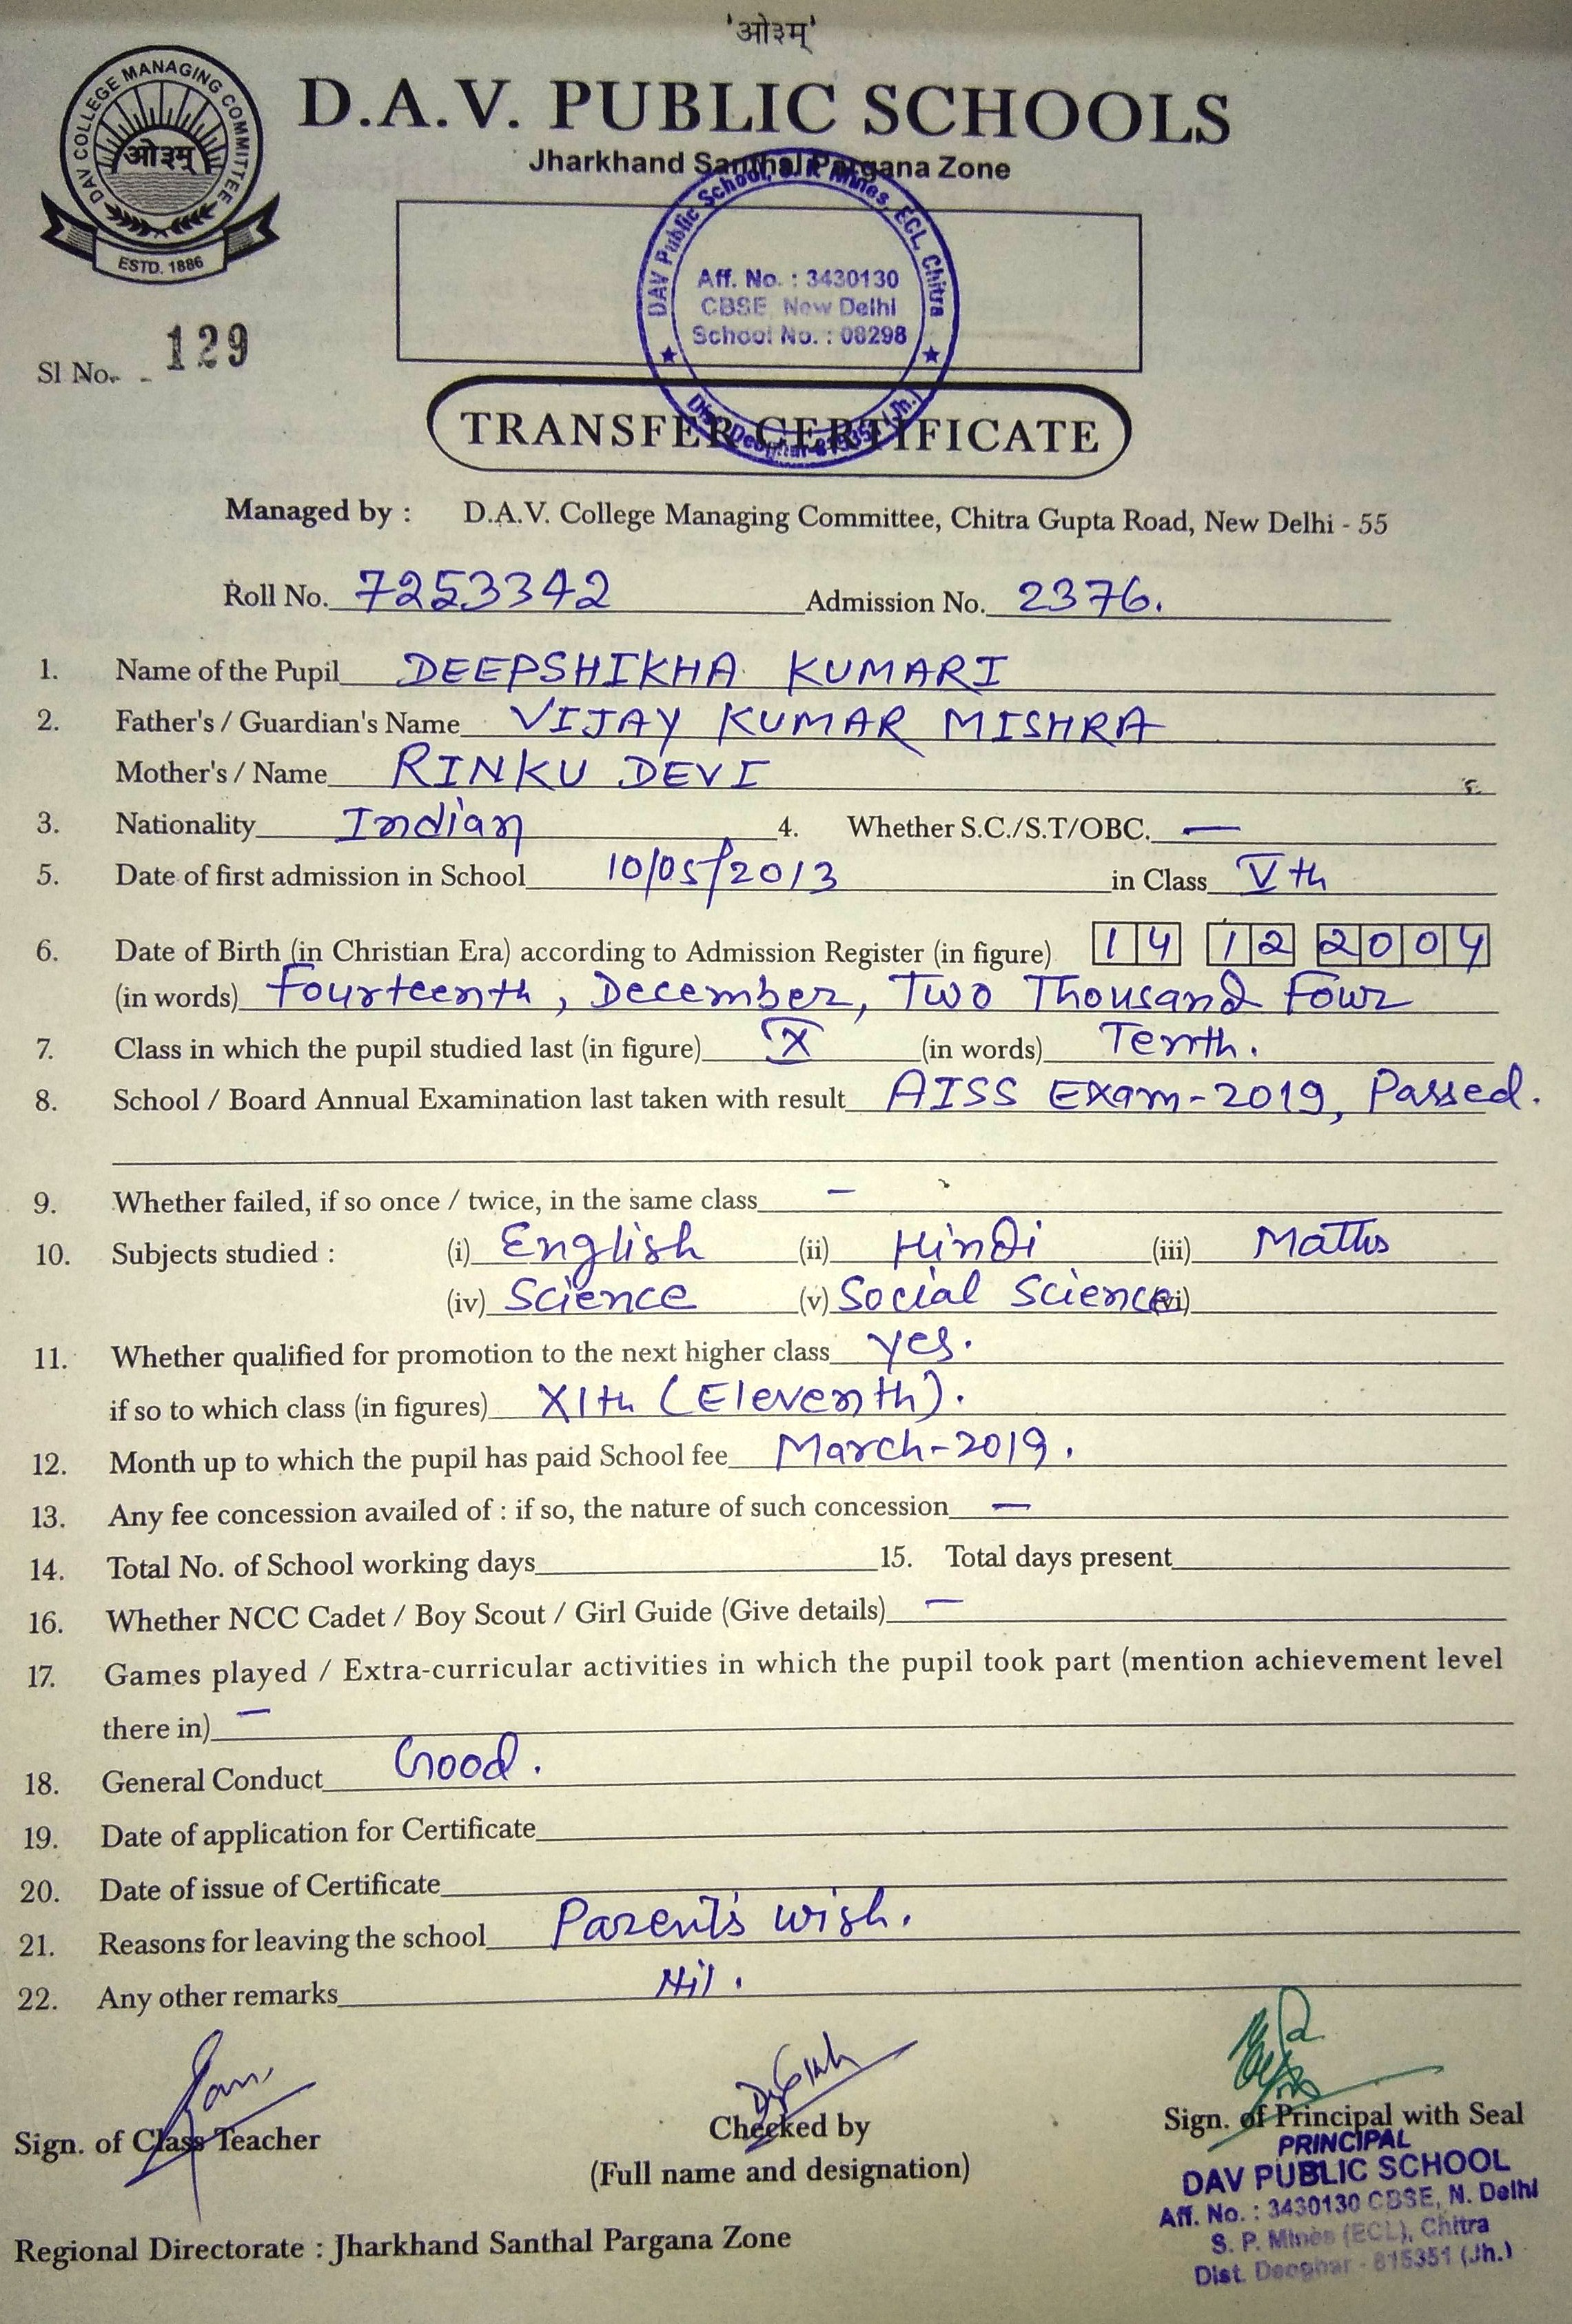 'ओ३म्'
DAV COLLEGE MANAGING COMMITTEE
ओ३म्
ESTD. 1886
D.A.V. PUBLIC SCHOOLS
Jharkhand Santhal Pargana Zone
DAV Public School, S. P. Mines, ECL, Chitra
Aff. No. : 3430130
CBSE, New Delhi
School No. : 08298
Dist. Deoghar-815351 (Jh.)
Sl No. 129
TRANSFER CERTIFICATE
Managed by : D.A.V. College Managing Committee, Chitra Gupta Road, New Delhi - 55
Roll No. 7253342 Admission No. 2376.
1. Name of the Pupil DEEPSHIKHA KUMARI
2. Father's / Guardian's Name VIJAY KUMAR MISHRA
Mother's / Name RINKU DEVI
3. Nationality Indian 4. Whether S.C./S.T/OBC. —
5. Date of first admission in School 10/05/2013 in Class Vth
6. Date of Birth (in Christian Era) according to Admission Register (in figure) 14 12 2004
(in words) Fourteenth, December, Two Thousand Four
7. Class in which the pupil studied last (in figure) X (in words) Tenth.
8. School / Board Annual Examination last taken with result AISS Exam-2019, Passed.
9. Whether failed, if so once / twice, in the same class —
10. Subjects studied : (i) English (ii) Hindi (iii) Maths
(iv) Science (v) Social Science (vi)
11. Whether qualified for promotion to the next higher class yes.
if so to which class (in figures) XIth (Eleventh).
12. Month up to which the pupil has paid School fee March-2019.
13. Any fee concession availed of : if so, the nature of such concession —
14. Total No. of School working days 15. Total days present
16. Whether NCC Cadet / Boy Scout / Girl Guide (Give details) —
17. Games played / Extra-curricular activities in which the pupil took part (mention achievement level
there in) —
18. General Conduct Good.
19. Date of application for Certificate
20. Date of issue of Certificate
21. Reasons for leaving the school Parent's wish.
22. Any other remarks Nil.
Sign. of Class Teacher
Checked by
(Full name and designation)
Sign. of Principal with Seal
PRINCIPAL
DAV PUBLIC SCHOOL
Aff. No. : 3430130 CBSE, N. Delhi
S. P. Mines (ECL), Chitra
Dist. Deoghar - 815351 (Jh.)
Regional Directorate : Jharkhand Santhal Pargana Zone